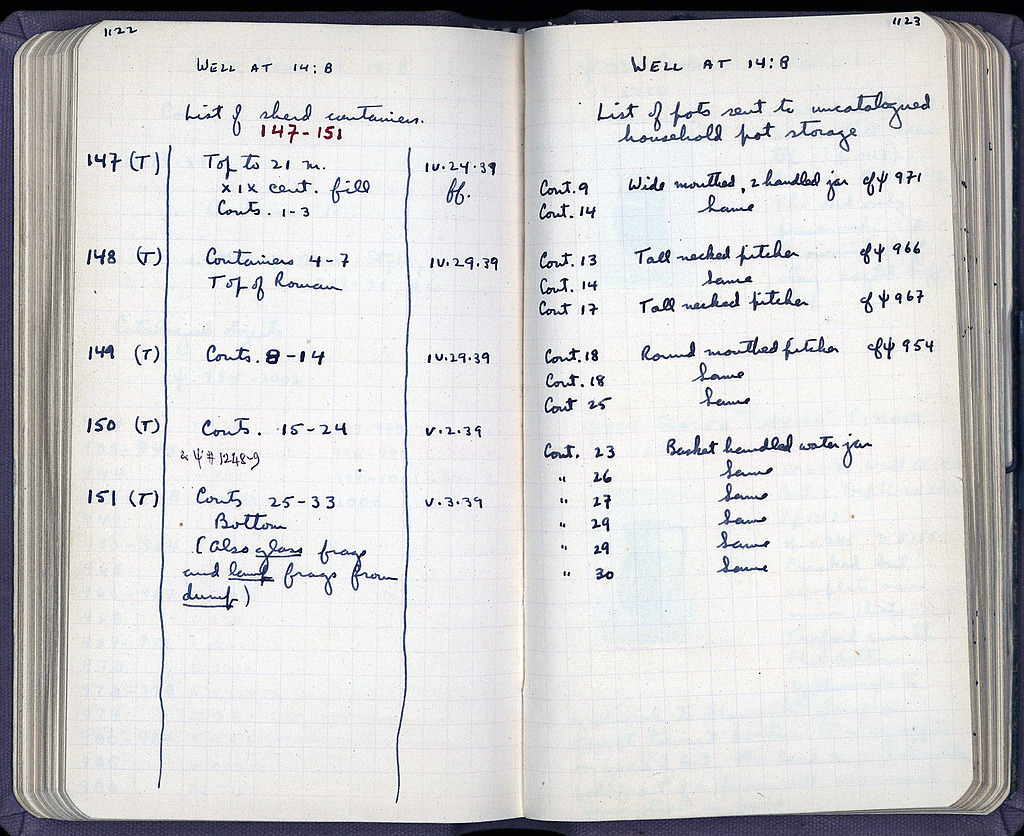 1122
WELL AT 14:B
List of sherd containers.
147-151
147 (T) Top to 21 m. IV.24.39
XIX cent. fill ff.
Conts. 1-3
148 (T) Containers 4-7 IV.29.39
Top of Roman
149 (T) Conts. 8-14 IV.29.39
150 (T) Conts. 15-24 V.2.39
& Ψ# 1248-9
151 (T) Conts 25-33 V.3.39
Bottom
(Also glass frags
and lamp frags from
dump)
1123
WELL AT 14:B
List of pots sent to uncatalogued
household pot storage
Cont. 9 Wide mouthed, 2 handled jar cf Ψ 971
Cont. 14 Same
Cont. 13 Tall necked pitcher cf Ψ 966
Cont. 14 Same
Cont 17 Tall necked pitcher cf Ψ 967
Cont. 18 Round mouthed pitcher cf Ψ 954
Cont. 18 Same
Cont 25 Same
Cont. 23 Basket handled water jar
" 26 Same
" 27 Same
" 29 Same
" 29 Same
" 30 Same